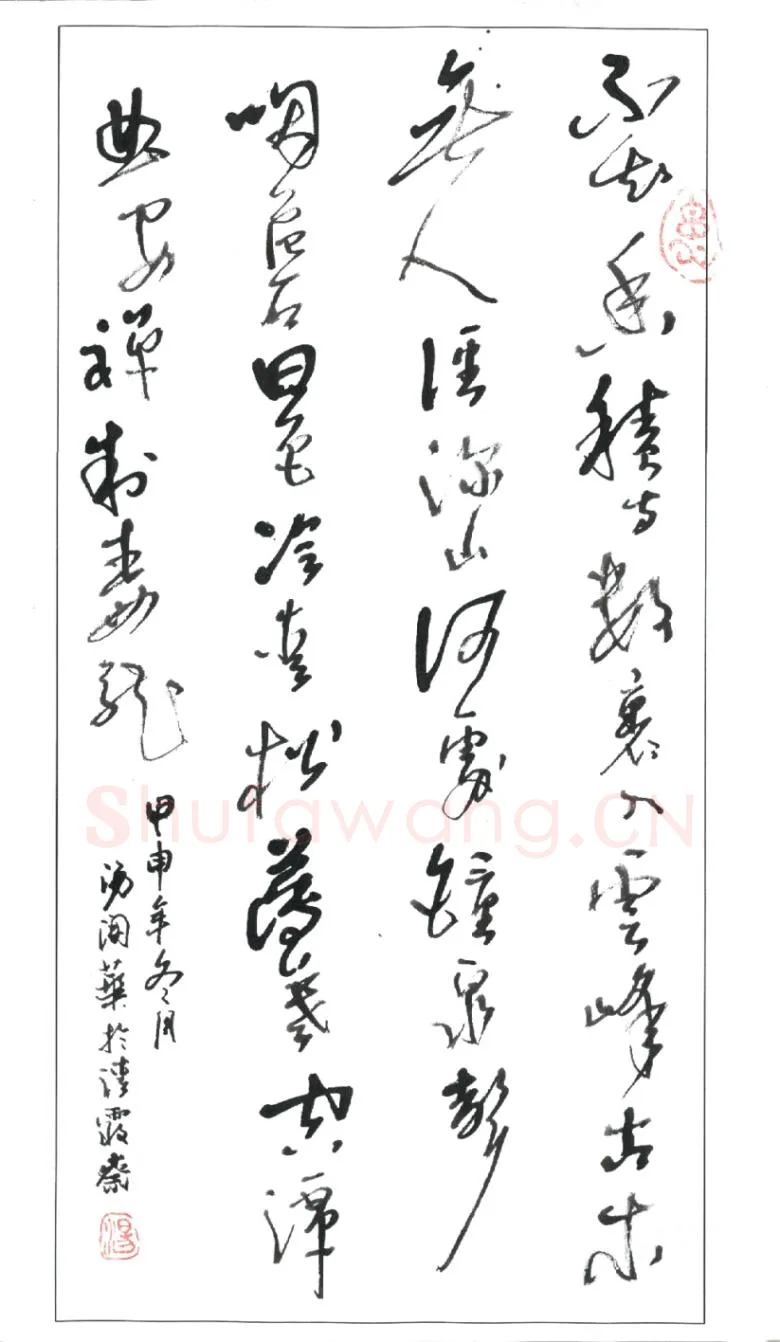 不知香積寺數裏入雲峰古木
無人徑深山何處鐘泉聲
咽危石日色冷青松薄暮空潭
曲安禪制毒龍
甲申年冬月
湯華於霞齋
Shufawang.CN